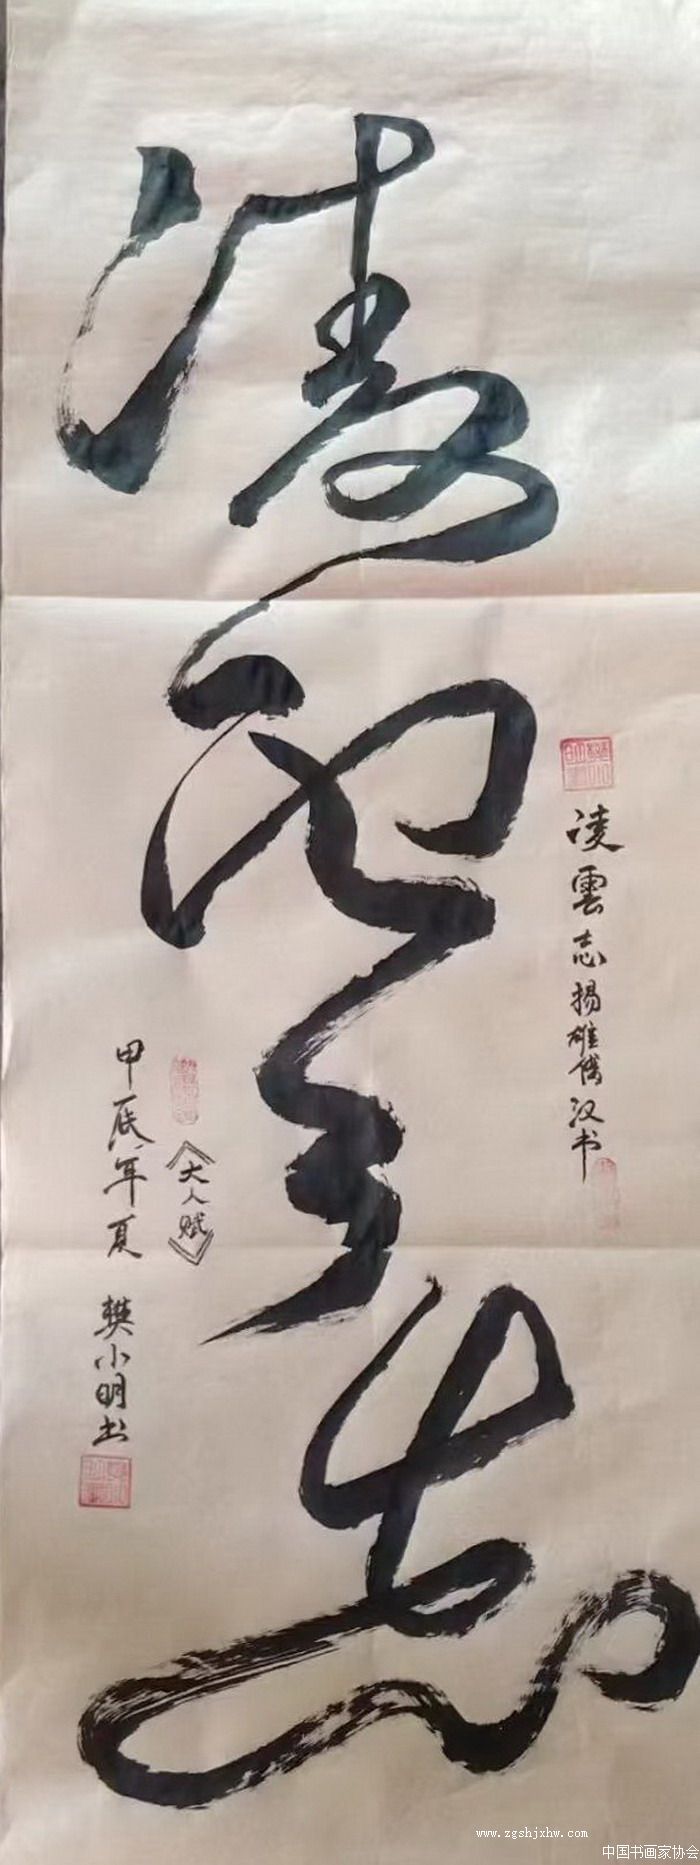 凌雲志
凌雲志揚雄傳汉书
《大人赋》
甲辰年夏 樊小明书
www.zgshjxhw.com
中国书画家协会